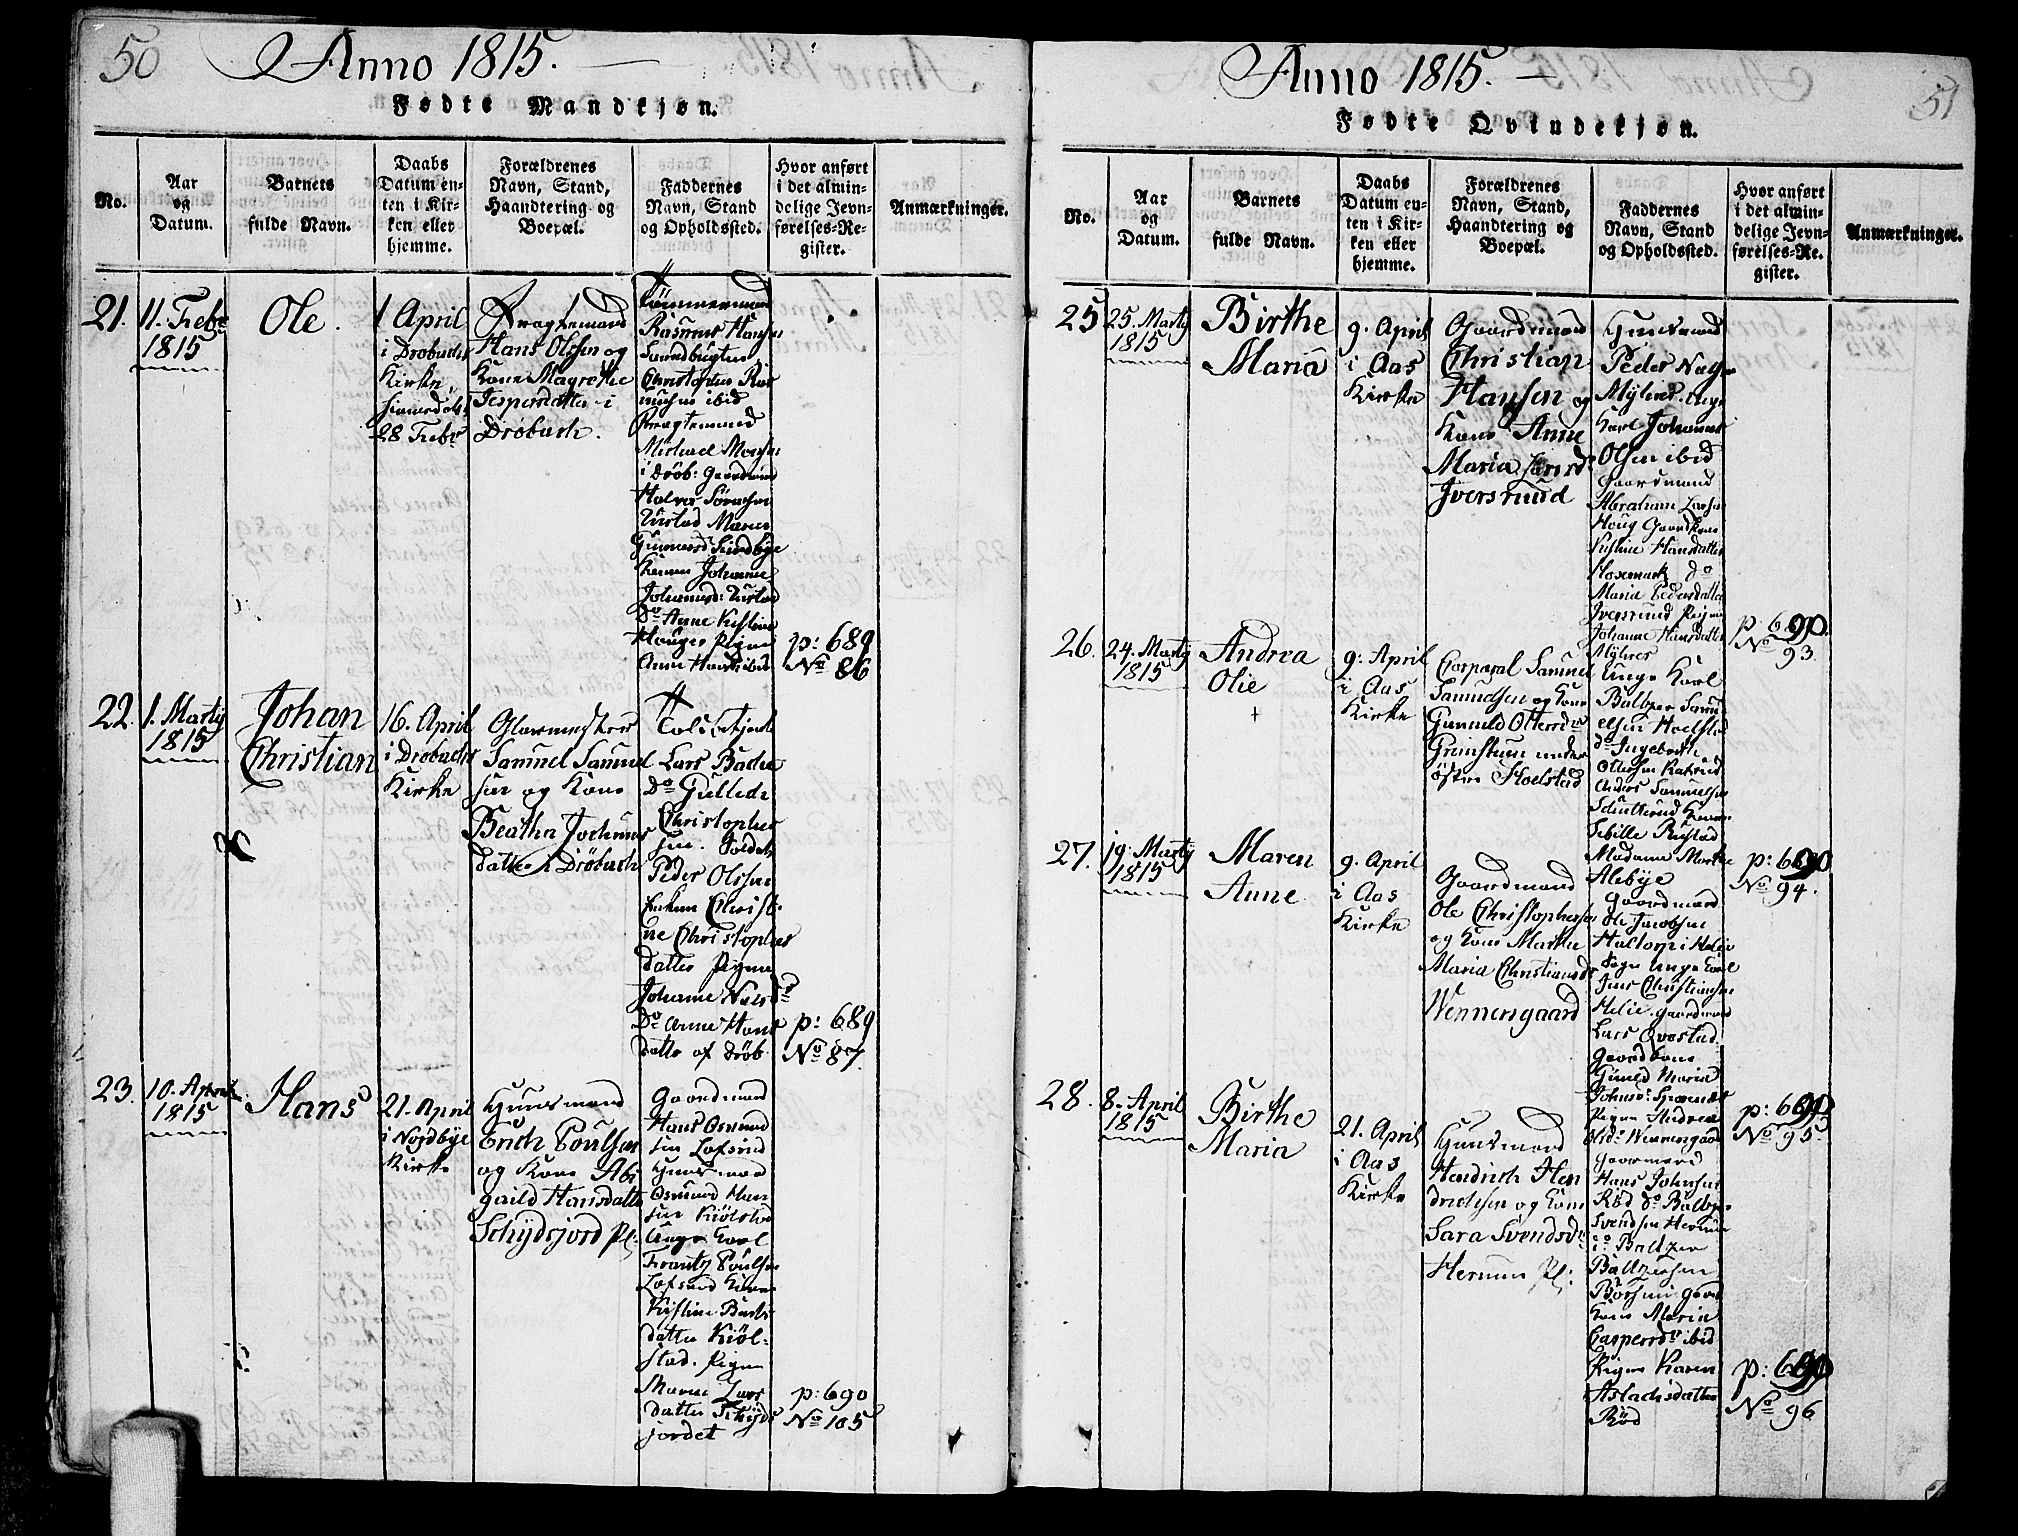 50
Anno 1815.
Fødte Mandkjøn.
No.
Aar
og
Datum.
Barnets
fulde Navn.
Daabs
Datum en-
ten i Kir-
ken eller
hjemme.
Forældrenes
Navn, Stand,
Haandtering og
Boepæl.
Faddernes
Navn, Stand
og Opholdssted.
Hvor anført
i det almin-
delige Jevn-
førelses-Re-
gister.
Anmærkninger.
21.
11. Febr
1815
Ole.
1 April
i Drøbachs
Kirke,
hjemedøbt
28 Febr
Fragtemand
Hans Olsen og
Kone Magrethe
Jespersdatter i
Drøbach.
Tømmermand
Rasmus Hansen
Sandbugten
Christopher Ras
musen ibid
Fragtemand
Michael
i Drøb: Gaardmand
Halvor Sørensen
Maren
Gunnersd
Konen Johanne
Johannesd:
Do Anne Kistine
Pigen
Anne ibid
p: 689
No 86
22.
1. Marty
1815
Johan
Christian
16. April
i Drøbachs
Kirke
Glarmester
Samuel Samuel
sen og Kone
Beatha Jochums
datter i Drøbach
Toldbetjent
Lars Bache
Do Gullich
Christopher
sen. Soldat
Peder Olsen
Enken Christi
ne Christophers
datter Pigen
Johanne
Do Anne Hans
datter af Drøb
p: 689
No 87.
23.
10. April
1815
Hans
21. April
i Nordbye
Kirke
Huusmand
Erich Poulsen
og Kone Abi
gaild Hansdatter
Schydsjord Pl:
Gaardmand
Hans Osmund
sen Lofsrud
Huusmand
Osmund Han
sen Kiølstad
Unge Karl
Frantz Poulsen
Lofsrud Kone
Kistine
datter Kiøl-
stad. Pigen
Maren Lars
datter Schyds
jordet
p: 690
No 105
51
Anno 1815.
Fødte Qvindekjøn.
No.
Aar
og
Datum.
Barnets
fulde Navn.
Daabs
Datum en-
ten i Kir-
ken eller
hjemme.
Forældrenes
Navn, Stand,
Haandtering og
Boepæl.
Faddernes
Navn, Stand
og Opholdssted.
Hvor anført
i det almin-
delige Jevn-
førelses-Re-
gister.
Anmærkninger.
25
25. Marty
1815
Birthe
Maria
9. April
i Aas
Kirke
Gaardmand
Christian
Hansen og
Kone Anne
Maria Larsd:
Iversrud
Huusmand
Peder
Myhrer. Unge
Karl Johannes
Olsen ibid
Gaardmand
Abraham Larsen
Houg Gaardkone
Kistine Hansdatter
Hoxmark do
Maria Pedersdatter
Iversrud Pigen
Johanne Hansdatter
Myhrer
p: 690.
No 93.
26.
24. Marty
1815
Andrea
Olie
9. April
i Aas
Kirke
Corporal Samuel
Samuelsen og Kone
Gunnild Ottersdr
Grimstuen under
østre Hoelstad
Unge Karl
Baltzer Samu
elsen Hoelstad
do Ingebreth
Ottersen
Anders Samuelsen
Konen
Sibille Rustad
Madame
Alebye
p: 690
No 94.
27.
19. Marty
1815
Maren
Anne
9. April
i Aas
Kirke
Gaardmand
Ole Christophersen
og Kone Marthe
Maria Christiansdr
Wennersgaard
Gaardmand
Ole Jacobsen
Haltorp i
Sogn Unge Karl
Jens Christiansen
Gaardmand
Lars Qvestad
Gaardkone
Gunild Maria
Pigen Andrea
Wennersgaard
p: 690
No 95
28.
8. April
1815
Birthe
Maria
21. April
i Aas
Kirke
Huusmand
Hendrich Hen
drichsen og Kone
Sara Svendsdr
Herum Pl:
Gaardmand
Hans Johnsen
Rød do Baltzer
Svendsen Herum
do Baltzer
Baltzersen
Gaard
Kone Maria
Caspersdr ibid
Pigen Karen
Aslachsdatter
Rød
p: 690
No 96